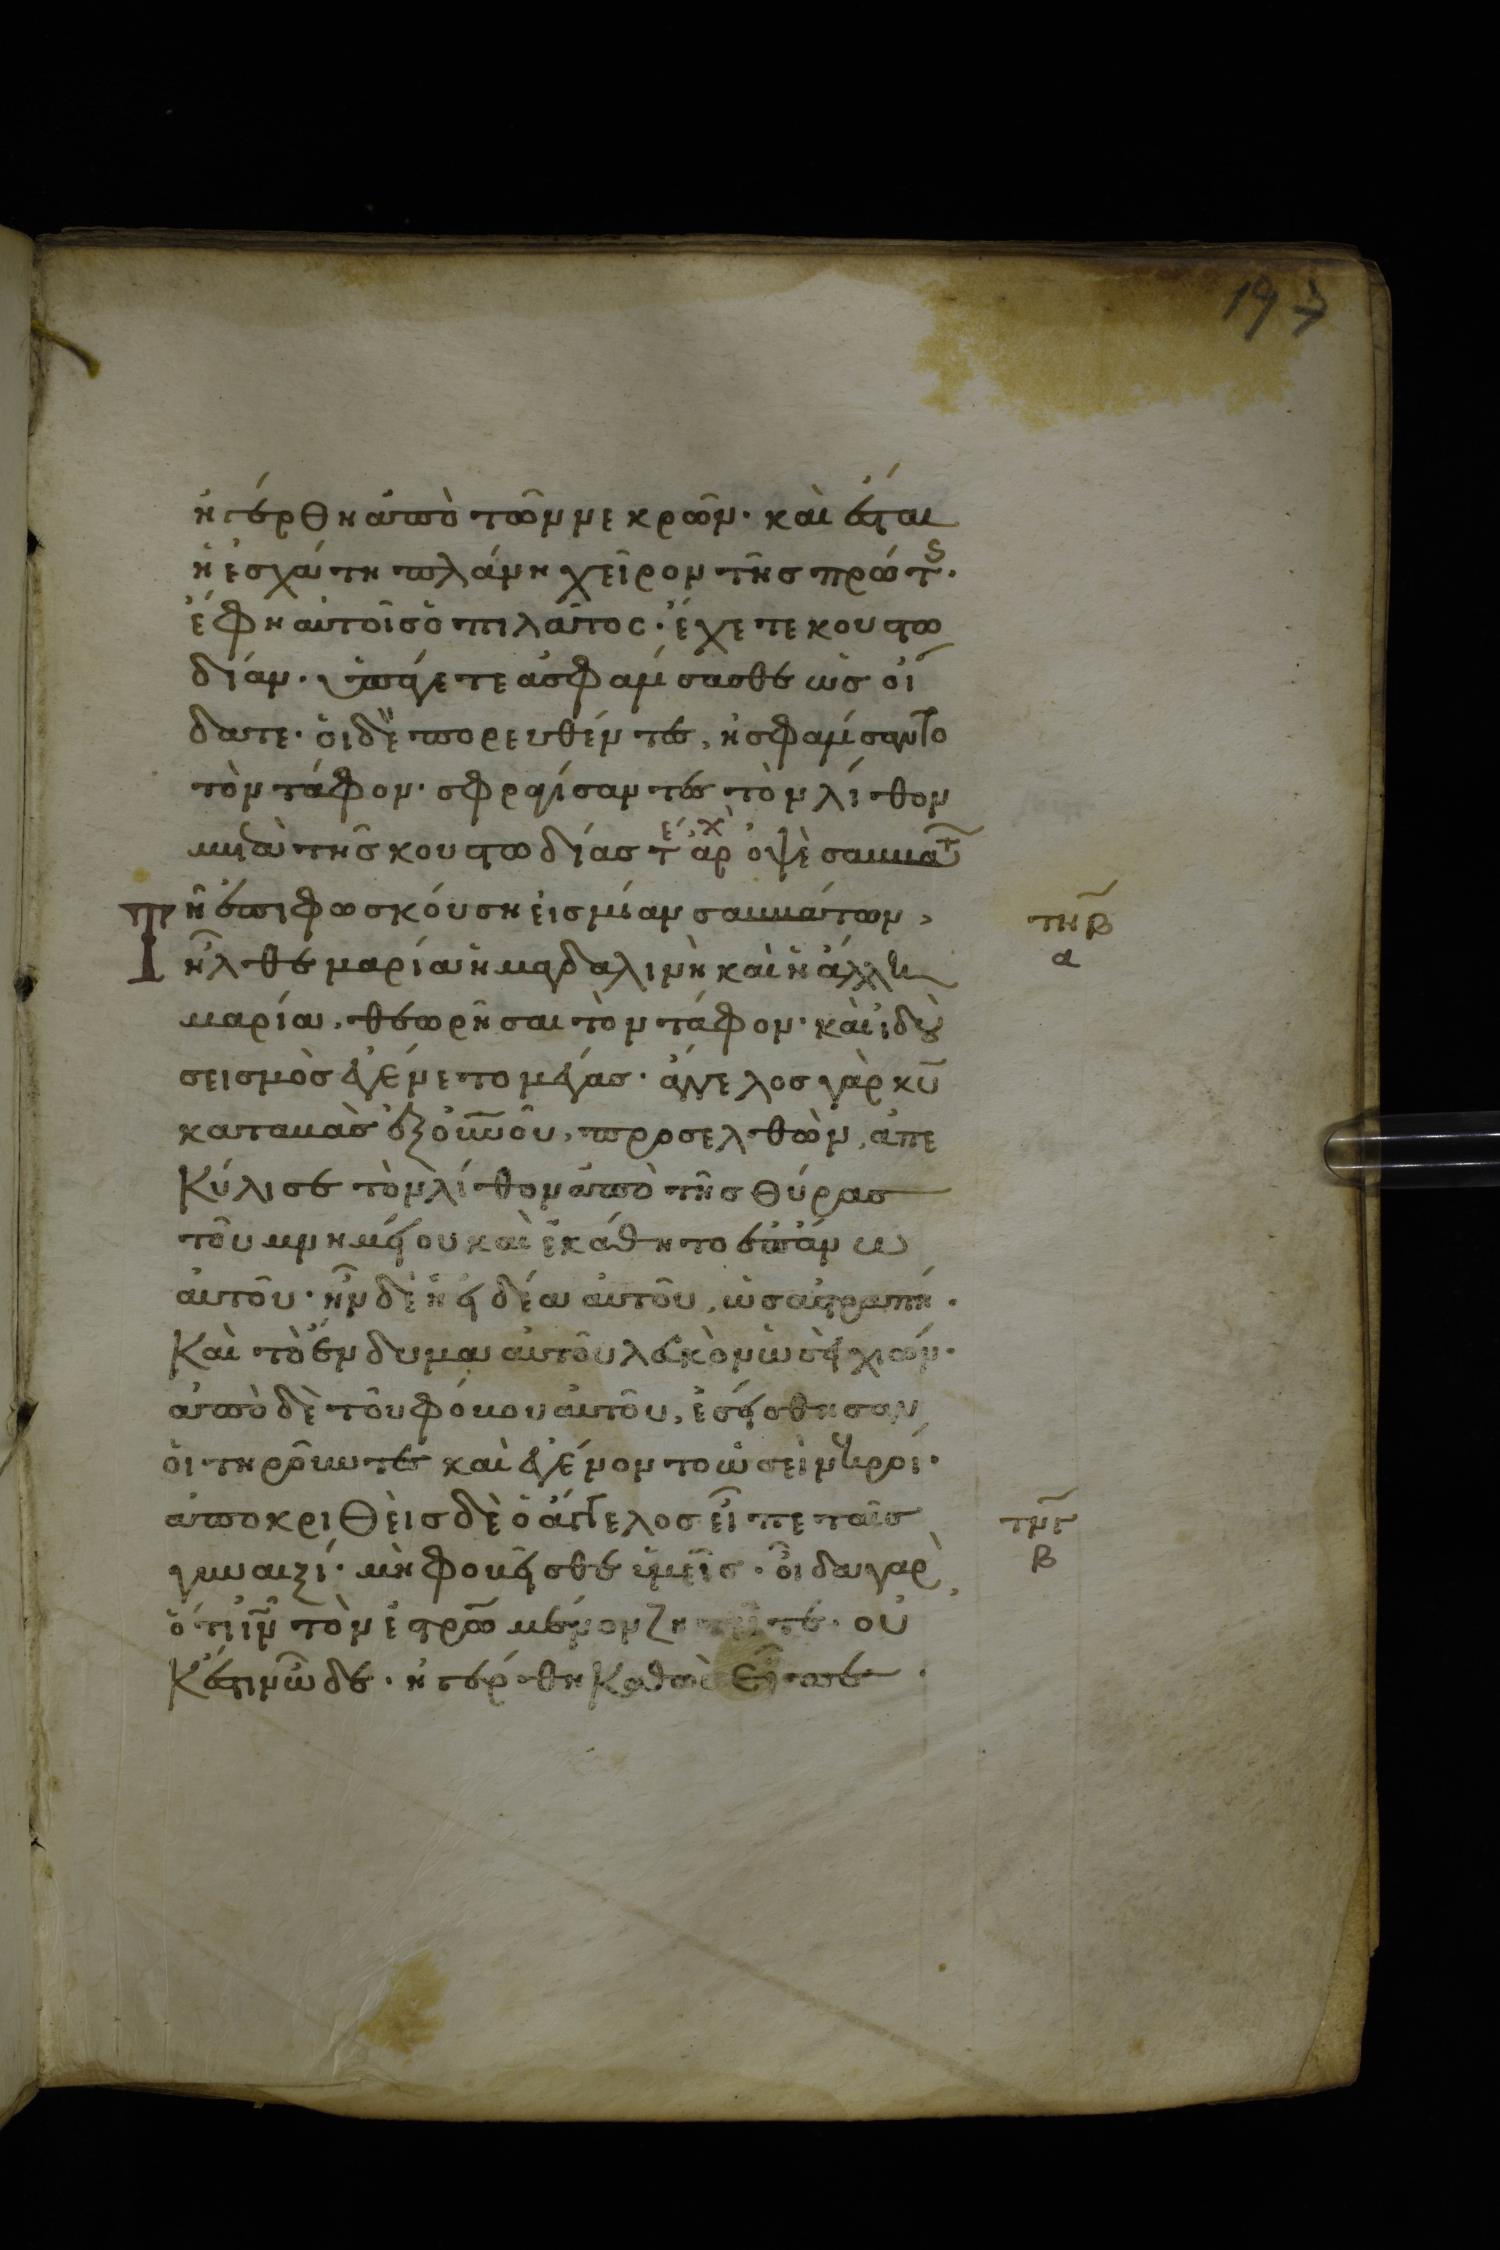 197
ἠγέρθη ἀπὸ τῶν νεκρῶν· καὶ ἔσται
ἡ ἐσχάτη πλάνη χεῖρον τῆς πρώτ(ης)·
ἔφη αὐτοῖς ὁ πιλάτος· ἔχετε κουστω
δίαν· ὑπάγετε ἀσφαλίσασθε ὡς οἴ
δατε· οἱ δὲ πορευθέντες, ἠσφαλίσαντο
τὸν τάφον· σφραγίσαντες τὸν λίθον
μετὰ τῆς κουστωδίας τέ αρχ ὀψὲ σαββάτ
τῆ ἐπιφωσκούση εἰς μίαν σαββάτων,
τηβ
α
ἦλθε μαρία ἡ μαγδαλινὴ καὶ ἡ ἄλλη
μαρία, θεωρῆσαι τὸν τάφον· καὶ ἰδοὺ
σεισμὸς ἐγένετο μέγας· ἄγγελος γὰρ κυ
καταβὰς ἐξ οὐνοῦ, προσελθὼν, ἀπε
κύλισε τὸν λίθον ἀπὸ τῆς θύρας
τοῦ μνημείου καὶ ἐκάθητο ἐπάνω
αὐτοῦ· ἦν δὲ ἡ εἰδέα αὐτοῦ, ὡς ἀστραπή·
καὶ τὸ ἔνδυμα αὐτοῦ λευκὸν ὡσεὶ χιών·
ἀπὸ δὲ τοῦ φόβου αὐτοῦ, ἐσείσθησαν
οἱ τηροῦντες καὶ ἐγένοντο ὡσεὶ νεκροί·
ἀποκριθεὶς δὲ ὁ ἄγγελος εἶπε ταῖς
τνγ
β
γυναιξί· μὴ φοβεῖσθε ὑμεῖς· οἶδα γὰρ
ὅτι ιν τὸν ἐστρωμένον ζητεῖτε· οὐ
κ ἔστιν ὧδε· ἠγέρθη καθὼς εἶπε·